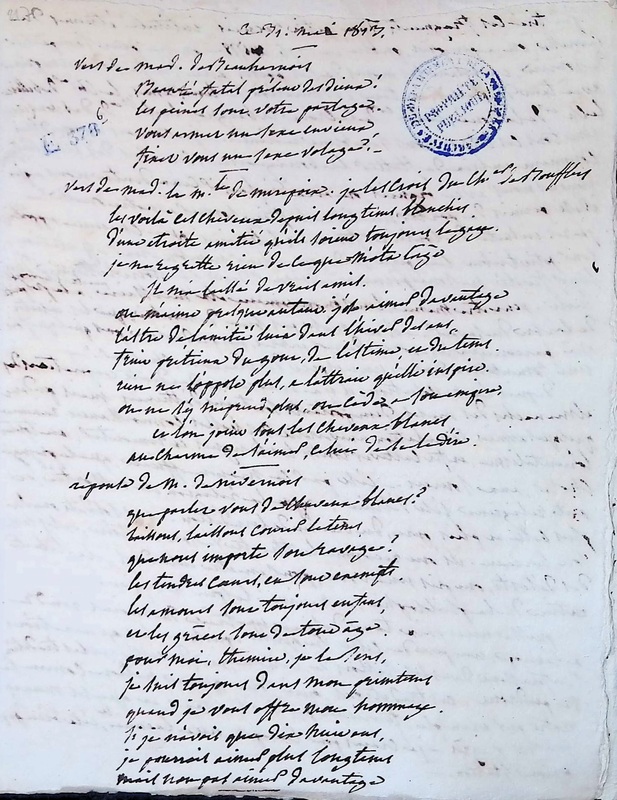 ce 31. mai 1813.
vers de mad. de Beauharnois
Beauté fatal présent des dieux!
les peines sont votre partage.
vous armer un sexe envieux
fixer vous un sexe volage?
E 378
ARCHIVES PROPRIÉTÉ PUBLIQUE
vers de mad. la m.le de mirepoix. je les crois du Ch.er de Boufflers
les voilà ces cheveux depuis longtems blanchis.
d'une etroite amitié qu'ils soient toujours le gage.
je ne regrette rien de ce que m'ota l'age
il m'a laissé de vrais amis.
on m'aime presque autant, j'ose aimer davantage
l'astre de l'amitié luit dans l'hiver des ans,
fruit prétieux du gout, de l'estime, et du tems.
on ne s'y méprend plus, on cède a son empire,
et l'on joint sous les cheveux blancs
au charme de s'aimer, celui de se le dire.
réponse de M. de nivernois
que parlez vous de cheveux blancs?
laissons, laissons courir le tems
que nous importe son ravage?
les tendres coeurs, en sont exempts.
les amours sont toujours enfans,
et les grâces sont de tout âge.
pour moi, themire, je le sens,
je suis toujours dans mon printems
quand je vous offre mon hommage.
si je n'avois que dix huit ans,
je pourrois aimer plus longtems
mais non pas aimer davantage